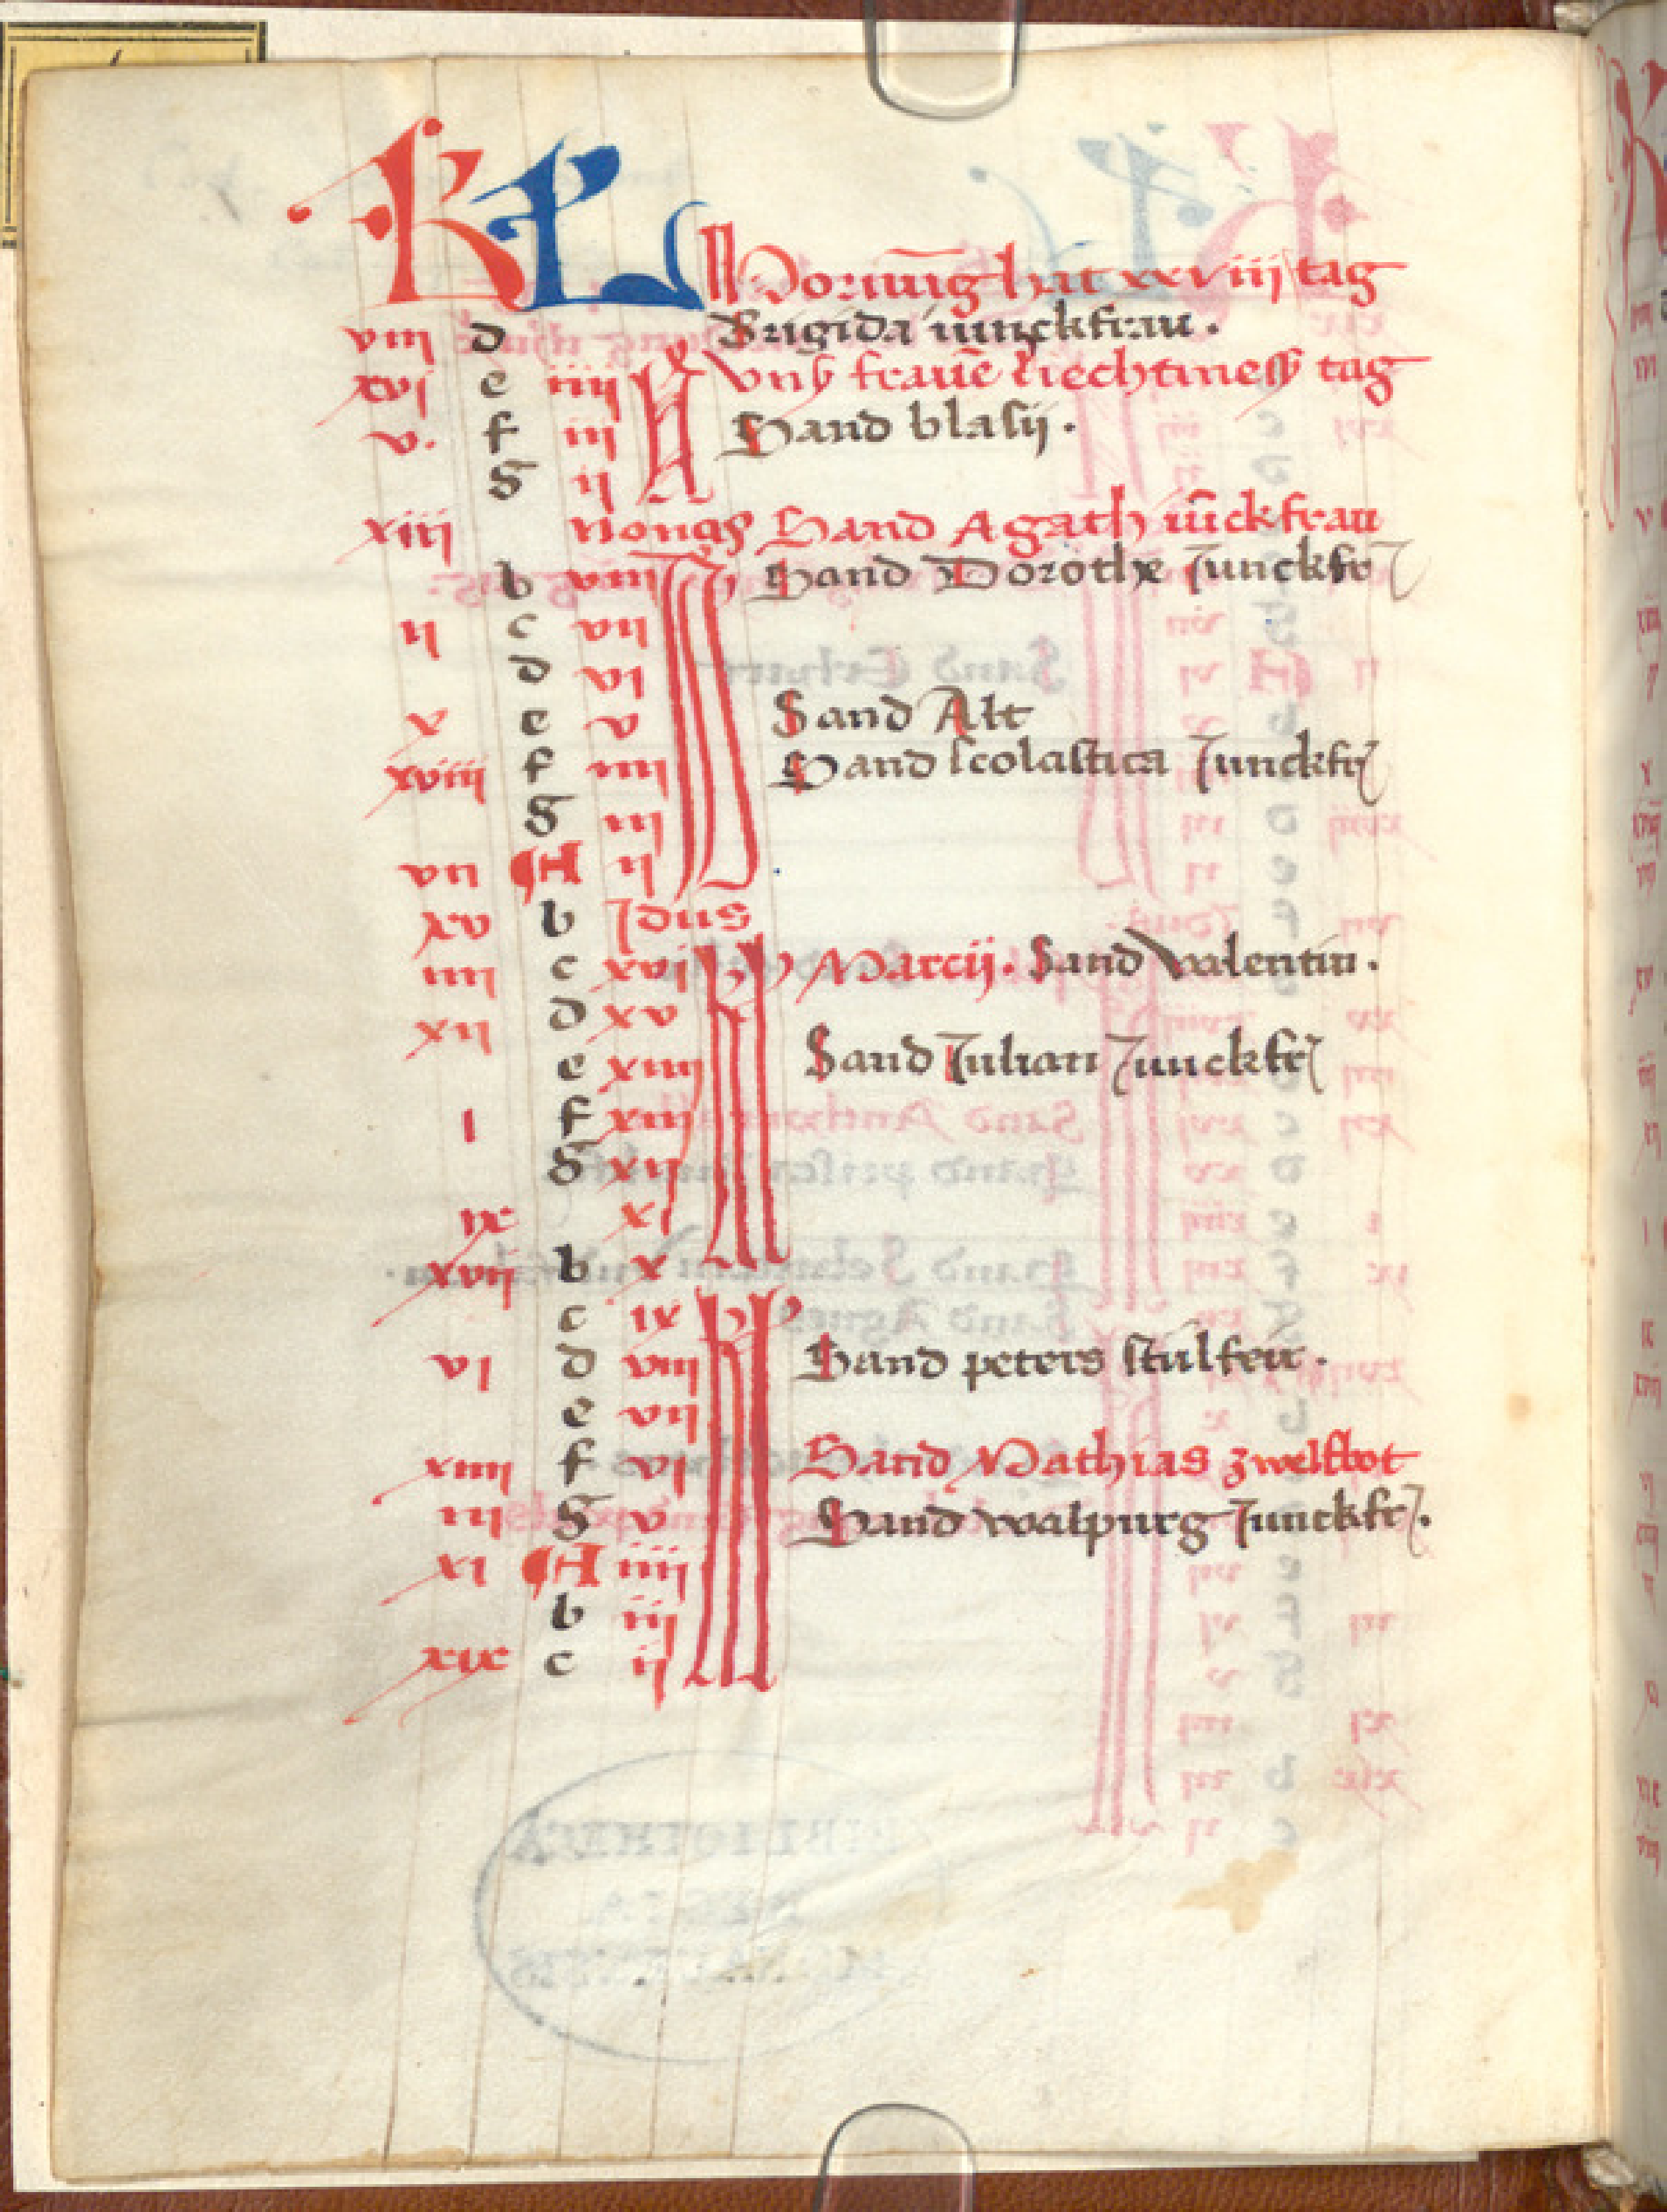 KL Hornũg hat xxviij tag
viij d Brigida iunckfrau.
xvj e iiij N Vnß frauē Liechtmeß tag
v. f iij Sand blasij.
g ij
xiij Nonas Sand Agath iūckfrau
b viij Id Sand Dorothe Junckfr
ij c vij
d vi
x e v Sand Alt
xviij f iiij Sand scolastica Junckfr
g iij
vij A ij
xv b Jdus
iiij c xvj kl Marcij. Sand Valentin.
xij d xv
e xiiij Sand Julian Junckfr
I f xiij
g xij
ix xi
xvij b x
c ix kl
vi d viij Sand peters stůlfeir.
e vij
xiiij f vi Sand Mathias zwelfbot
iij g v Sand walpurg Junckfr.
xi A iiij
b iij
xix c ij